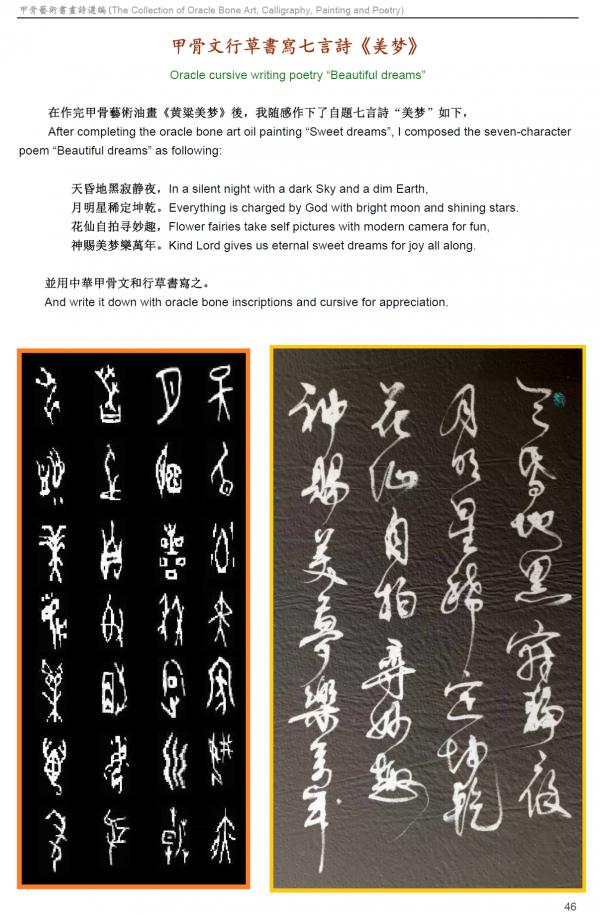 甲骨藝術書畫詩選編(The Collection of Oracle Bone Art, Calligraphy, Painting and Poetry)
甲骨文行草書寫七言詩《美梦》
Oracle cursive writing poetry “Beautiful dreams”
在作完甲骨藝術油畫《黄粱美梦》後，我随感作下了自題七言詩“美梦”如下，
After completing the oracle bone art oil painting “Sweet dreams”, I composed the seven-character
poem “Beautiful dreams” as following:
天昏地黑寂静夜，In a silent night with a dark Sky and a dim Earth,
月明星稀定坤乾。Everything is charged by God with bright moon and shining stars.
花仙自拍寻妙趣，Flower fairies take self pictures with modern camera for fun,
神赐美梦樂萬年。Kind Lord gives us eternal sweet dreams for joy all along.
並用中華甲骨文和行草書寫之。
And write it down with oracle bone inscriptions and cursive for appreciation.
天昏地黑寂静夜
月明星稀定坤乾
花仙自拍寻妙趣
神赐美梦樂萬年
46